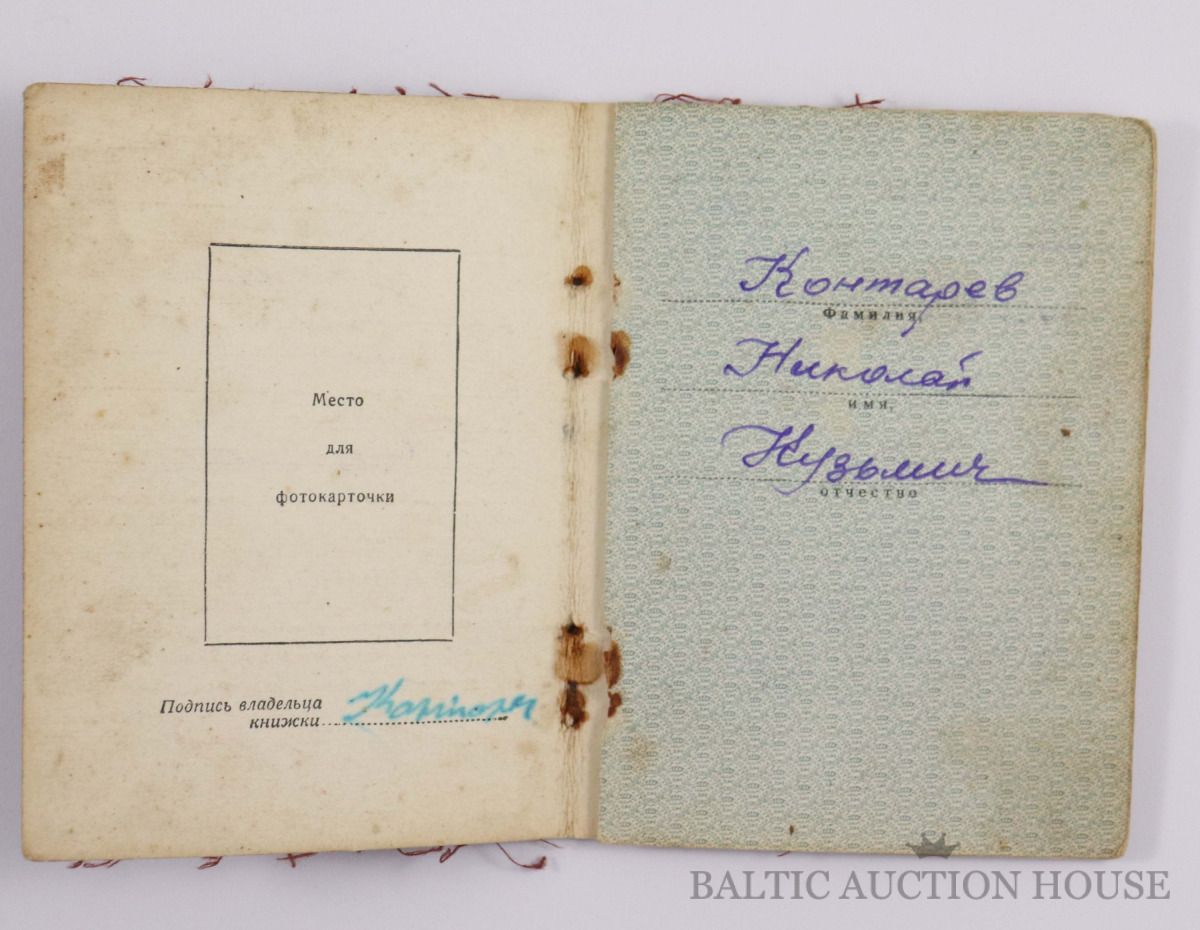 Место
для
фотокарточки
Подпись владельца
книжки
Контарев
фамилия,
Николай
имя,
Кузьмич
отчество
BALTIC AUCTION HOUSE